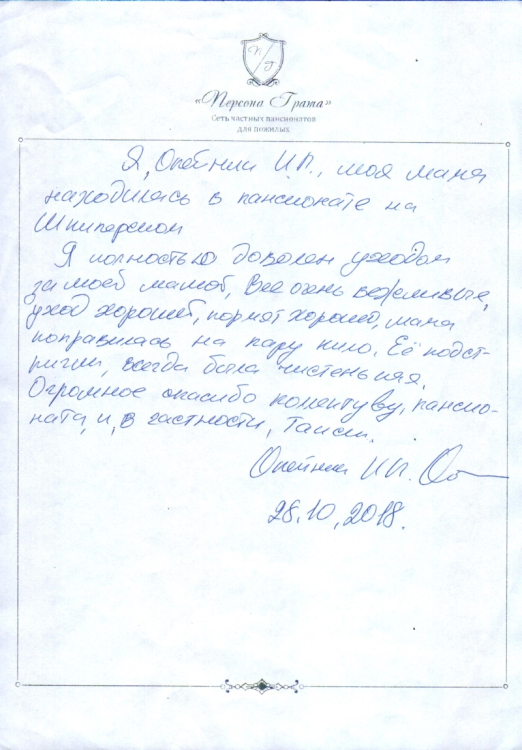 П/Г
«Персона Грата»
Сеть частных пансионатов
для пожилых
Я, И.П., моя мама
находилась в пансионате на
Я полностью доволен уходом
за моей мамой, Все очень вежливые,
уход хороший, кормят хорошо, мама
поправилась на пару кило. Её подст-
ригли, всегда была чистенькая.
Огромное спасибо коллективу, пансио-
ната, и, в частности, Таисии.
И.П.
28.10.2018.